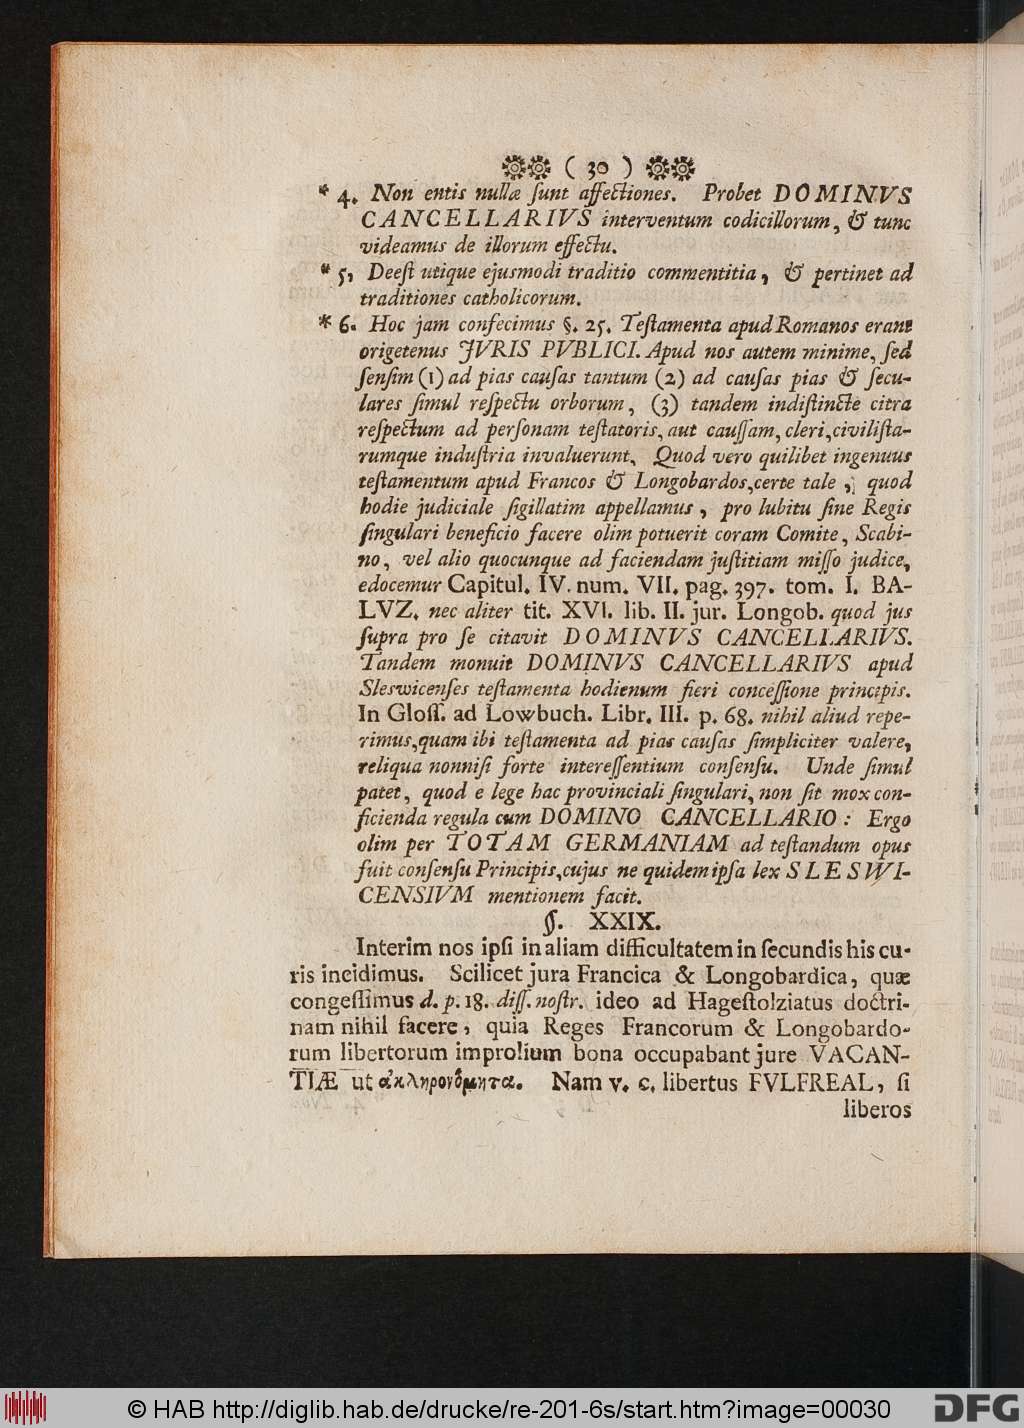 ( 30 )
* 4. Non entis nullæ ſunt affectiones. Probet DOMINVS
CANCELLARIVS interventum codicillorum, & tunc
videamus de illorum effectu.
* 5, Deeſt utique ejusmodi traditio commentitia, & pertinet ad
traditiones catholicorum.
* 6. Hoc jam confecimus §. 25. Teſtamenta apud Romanos erant
origetenus JVRIS PVBLICI. Apud nos autem minime, ſed
ſenſim (1) ad pias cauſas tantum (2) ad cauſas pias & ſecu-
lares ſimul reſpectu orborum, (3) tandem indiſtincte citra
reſpectum ad perſonam teſtatoris, aut cauſſam, cleri, civiliſta-
rumque induſtria invaluerunt, Quod vero quilibet ingenuus
teſtamentum apud Francos & Longobardos, certe tale, quod
hodie judiciale ſigillatim appellamus, pro lubitu ſine Regis
ſingulari beneficio facere olim potuerit coram Comite, Scabi-
no, vel alio quocunque ad faciendam juſtitiam miſſo judice,
edocemur Capitul. IV. num. VII. pag. 397. tom. I. BA-
LVZ. nec aliter tit. XVI. lib. II. jur. Longob. quod jus
ſupra pro ſe citavit DOMINVS CANCELLARIVS.
Tandem monuit DOMINVS CANCELLARIVS apud
Sleswicenſes teſtamenta hodienum fieri conceſſione principis.
In Gloſſ. ad Lowbuch. Libr. III. p. 68. nihil aliud repe-
rimus, quam ibi teſtamenta ad pias cauſas ſimpliciter valere,
reliqua nonniſi forte intereſſentium conſenſu. Unde ſimul
patet, quod e lege hac provinciali ſingulari, non ſit mox con-
ficienda regula cum DOMINO CANCELLARIO: Ergo
olim per TOTAM GERMANIAM ad teſtandum opus
fuit conſenſu Principis, cujus ne quidem ipſa lex SLESWI-
CENSIVM mentionem facit.
§. XXIX.
Interim nos ipſi in aliam difficultatem in ſecundis his cu-
ris incidimus. Scilicet jura Francica & Longobardica, quæ
congeſſimus d. p. 18. diſſ. noſtr. ideo ad Hageſtolziatus doctri-
nam nihil facere, quia Reges Francorum & Longobardo-
rum libertorum improlium bona occupabant jure VACAN-
TIÆ ut ἀκληρονόμητα. Nam v. c. libertus FVLFREAL, ſi
liberos
© HAB http://diglib.hab.de/drucke/re-201-6s/start.htm?image=00030
DFG